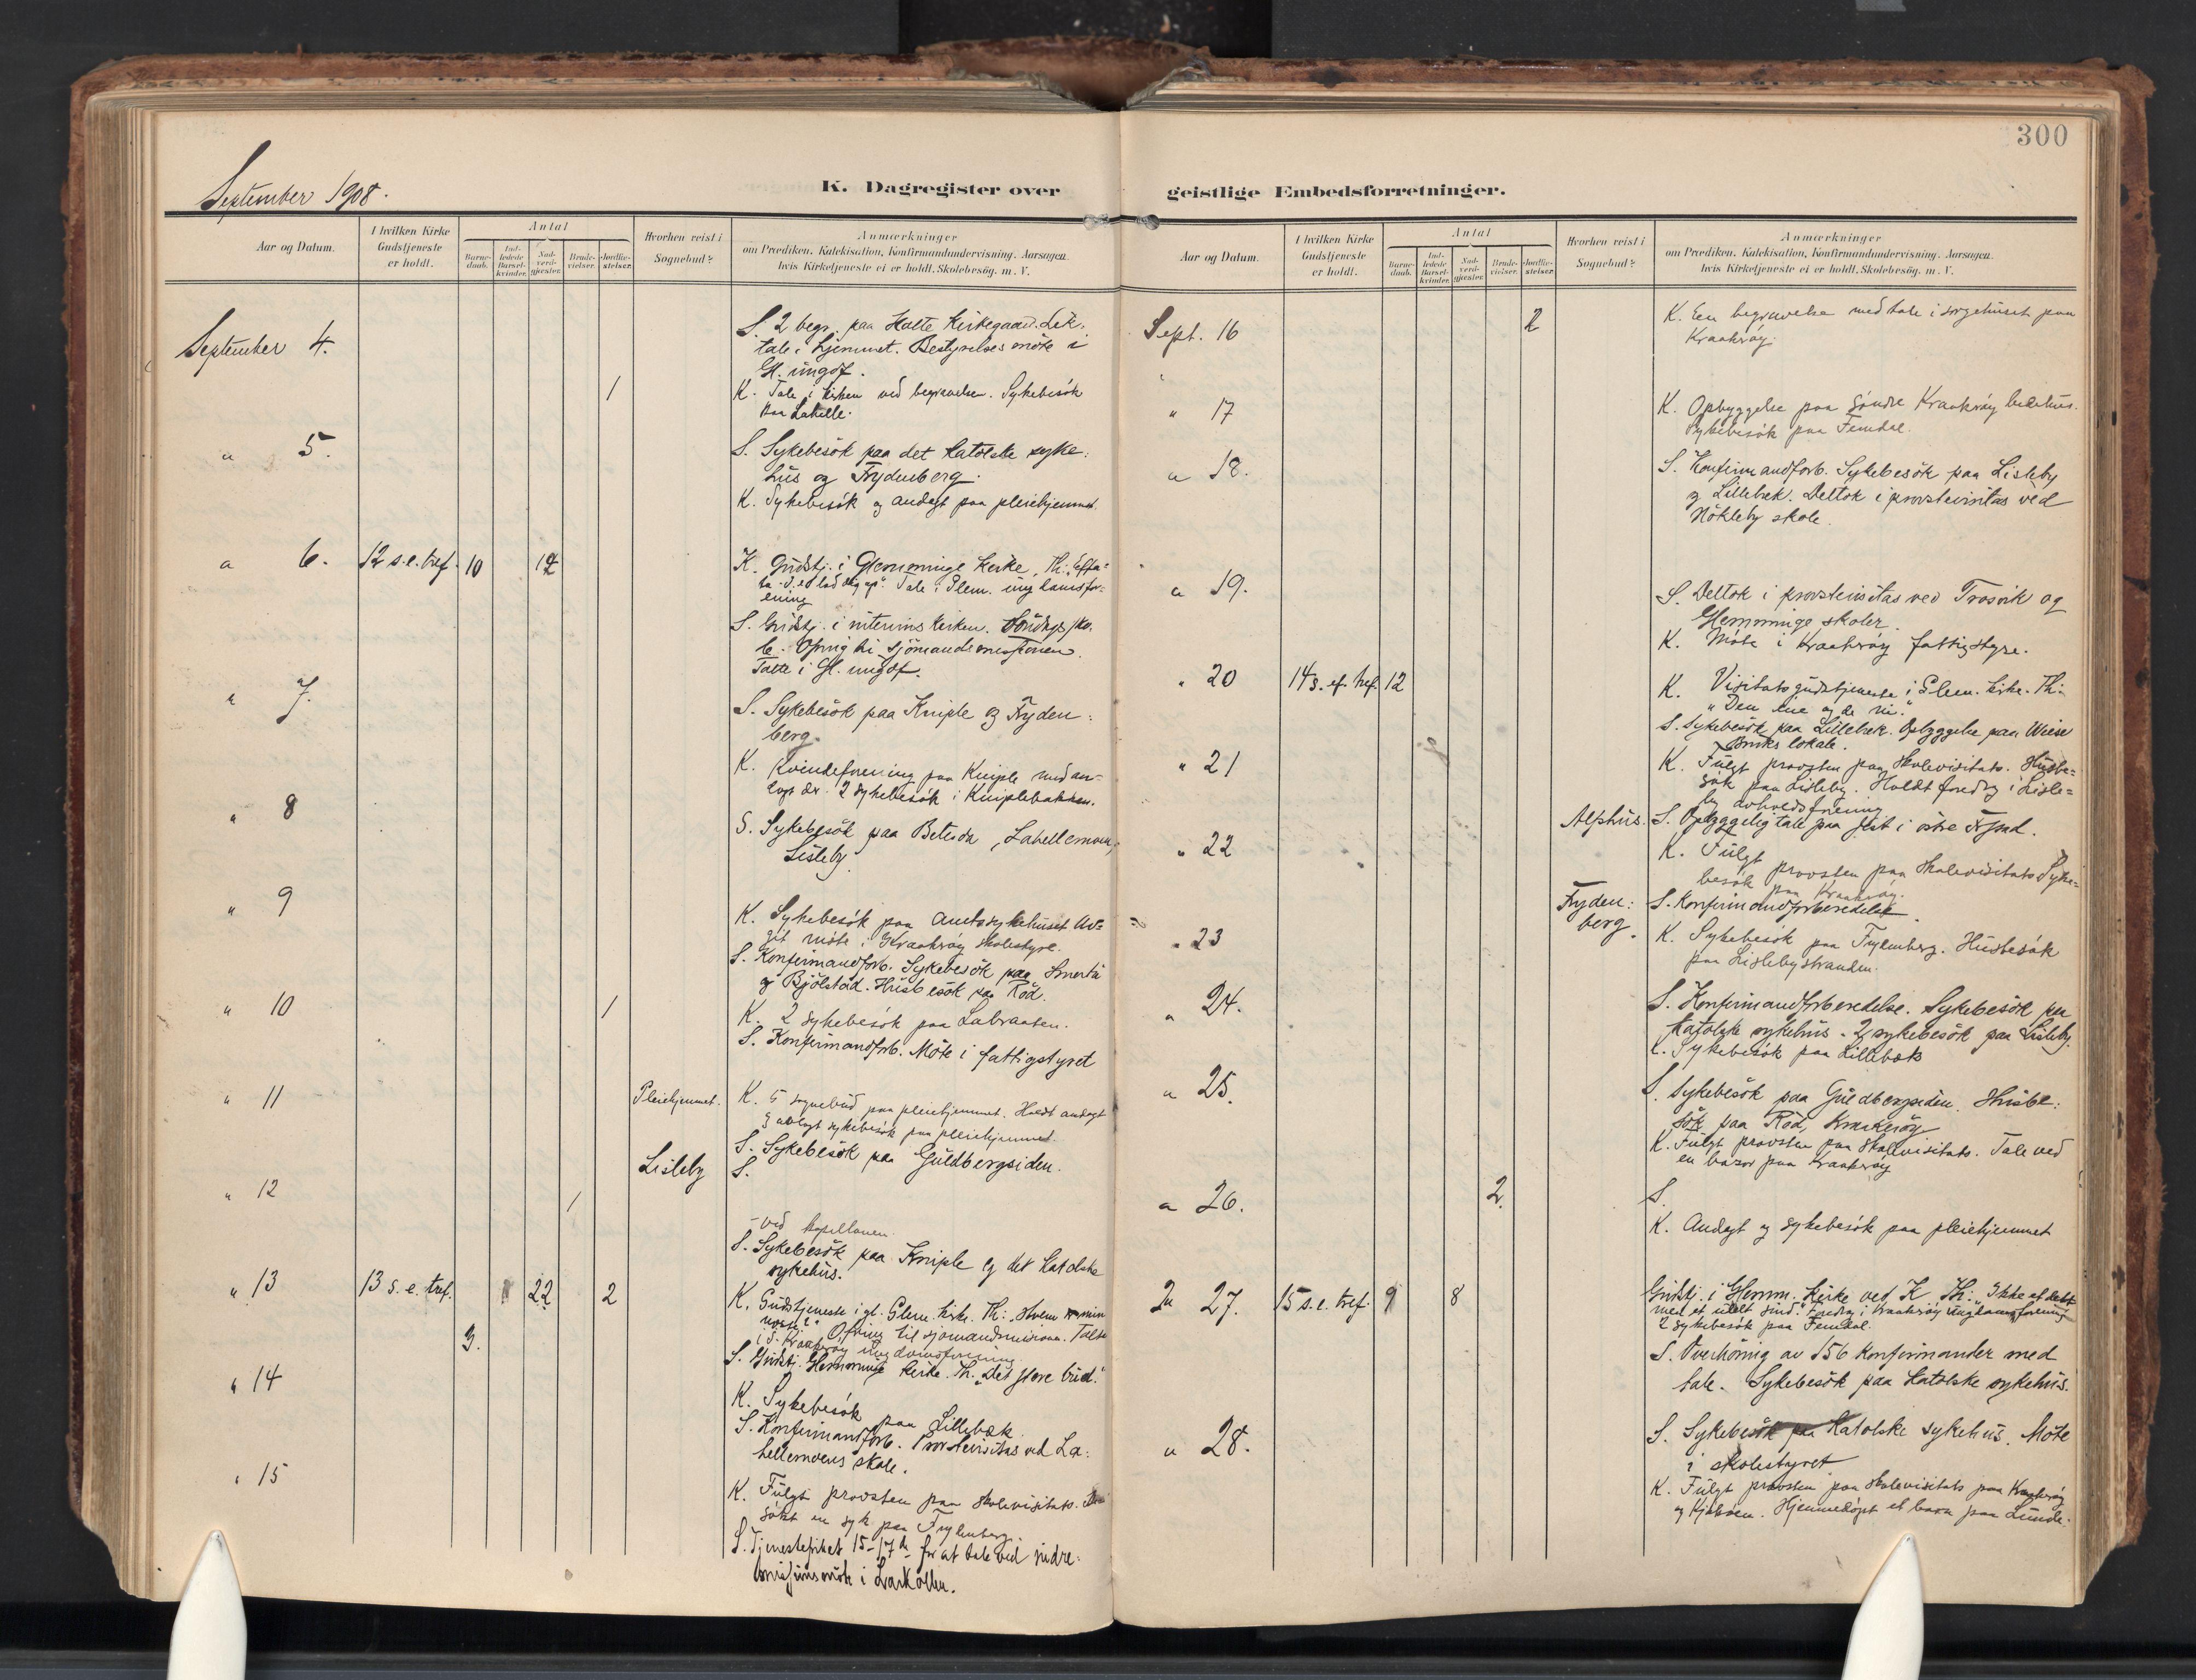 300
September 1908.
K. Dagregister over geistlige Embedsforretninger.
Aar og Datum.
I hvilken Kirke Gudstjeneste er holdt.
Antal
Barnedaab.
Indledede Barselkvinder.
Nadverdgjæster.
Brudevielser.
Jordfæstelser.
Hvorhen reist i Sognebud?
Anmærkninger
om Prædiken. Katekisation, Konfirmandundervisning. Aarsagen.
hvis Kirketjeneste ei er holdt. Skolebesög. m. V.
September 4.
S. 2 begr. paa Halte Kirkegaard. Lik.
tale i hjemmet. Bestyrelsesmöte i
Gl. ungdf.
1
K. Tale i kirken ved begravelsen. Sykebesök
paa Lahelle.
" 5.
S. Sykebesök paa det katolske syke:
hus og Frydenberg.
K. Sykebesök og andagt paa pleiehjemmet.
" 6. 12 s. e. tref. 10 12
K. Gudstj. i Glemminge kirke, Th: "Effa=
ta". Tale i Glem. ungdomsfor=
ening
S. Gudstj. i interimskirken. 
Sjömandsmissionen.
Talte i Gl. ungdf.
" 7.
S. Sykebesök paa Kniple og Fryden:
berg.
K. Kvindeforening paa Kniple med an=
dagt der. 2 sykebesök i Kniplebakken.
" 8
S. Sykebesök paa Betesda, Lahellemoen,
Lisleby
" 9
K. Sykebesök paa Amtssykehuset
möte i Kraakeröy skolestyre.
S. Konfirmandforb. Sykebesök paa Smertu
og Bjölstad. Husbesök paa Röd.
" 10 1
K. 2 sykebesök paa Labraaten.
S. Konfirmandforb. Möte i fattigstyret
" 11 Pleiehjemmet.
K. 5 sognebud paa pleiehjemmet. Holdt andagt
& avlagt sykebesök paa pleiehjemmet.
S. Sykebesök paa Guldbergsiden.
Lisleby S.
" 12 1
- ved kapellanen
S. Sykebesök paa Kniple og det katolske
sykehus.
" 13 13 s. e. tref. 22 2
K. Gudstjeneste i gl. Glem. kirke. Th: "Hvem er min
næste?" Ofring til sjömandsmissionen. Talte
i S. Kraakeröy ungdomsforening
3.
S. Gudstj. Glemminge kirke. Th. "Det store bud."
" 14
K. Sykebesök paa Lillebæk
S. Konfirmandforb. Provstevisitas ved La:
hellemoens skole.
" 15
K. Fulgt provsten paa skolevisitats. Be=
sökt en syk paa Frydenberg.
S. Tjenestefrihet 15-17de for at tale ved indre=
missionsmöte i Larkollen.
Aar og Datum.
I hvilken Kirke Gudstjeneste er holdt.
Antal
Barnedaab.
Indledede Barselkvinder.
Nadverdgjæster.
Brudevielser.
Jordfæstelser.
Hvorhen reist i Sognebud?
Anmærkninger
om Prædiken. Katekisation, Konfirmandundervisning. Aarsagen.
hvis Kirketjeneste ei er holdt. Skolebesög. m. V.
Sept. 16 2
K. Een begravelse med tale i sörgehuset paa
Kraakeröy.
" 17
K. Opbyggelse paa Söndre Kraakeröy bedehus.
Sykebesök paa Femdal.
" 18.
S. Konfirmandforb. Sykebesök paa Lisleby
og Lillebæk. Deltok i provstevisitas ved
Nökleby skole.
" 19.
S. Deltok i provstevisitas ved Trosvik og
Glemminge skoler.
K. Möte i Kraakeröy fattigstyre.
" 20 14 s. ef. tref. 12
K. Visitatsgudstjeneste i Glem. kirke. Th:
"Den ene og de ni."
S. Sykebesök paa Lillebæk. Opbyggelse paa Wiese
Bruks lokale.
" 21
K. Fulgt provsten paa skolevisitats. Husbe=
sök paa Lisleby. Holdt foredrag i Lisle=
by avholdsforening
Alshus. S. Opbyggelig tale paa fest i östre Fr.stad.
" 22
K. Fulgt provsten paa skolevisitats. Syke=
besök paa Kraakeröy.
Fryden:
berg.
S. Konfirmandforberedelse.
" 23
K. Sykebesök paa Frydenberg. Husbesök
paa Lislebystranden.
" 24.
S. Konfirmandforberedelse. Sykebesök paa
katolske sykehus. 2 sykebesök paa Lisleby.
K. Sykebesök paa Lillebæk
" 25.
S. Sykebesök paa Guldbergsiden. Husbe:
sök paa Röd, Kraakeröy
K. Fulgt provsten paa skolevisitats. Tale ved
en bazar paa Kraakeröy
" 26. 2
S.
K. Andagt og sykebesök paa pleiehjemmet
27. 15 s. e. tref. 9 8
Gudstj. i Glemm. kirke ved K. Th: "Ikke et delt
men et udelt sind." Foredrag i Kraakeröy ungdomsforening
2 sykebesök paa Femdal.
S. Overhöring av 156 konfirmander med
tale. Sykebesök paa katolske sykehus.
" 28.
S. Sykebesök paa katolske sykehus. Möte
i skolestyret
K. Fulgt provsten paa skolevisitats paa Kraakeröy
og Kjököen. Hjemmedöpt et barn paa Lunde.